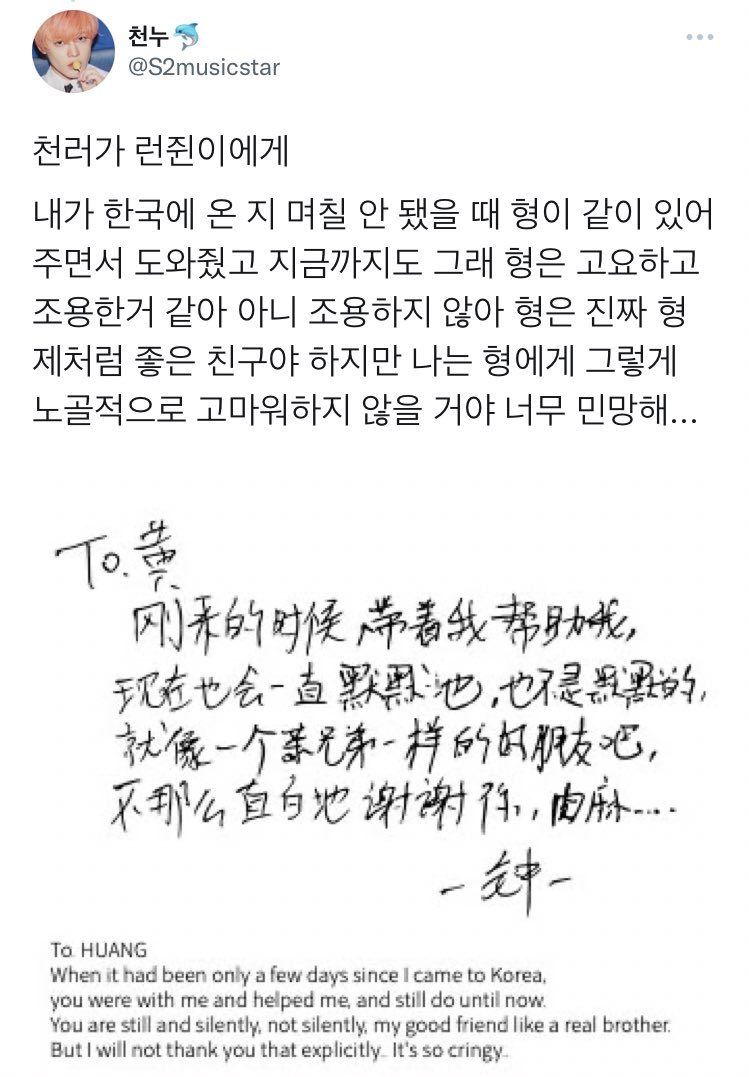 천누🐬
@S2musicstar
천러가 런쥔이에게
내가 한국에 온 지 며칠 안 됐을 때 형이 같이 있어
주면서 도와줬고 지금까지도 그래 형은 고요하고
조용한거 같아 아니 조용하지 않아 형은 진짜 형
제처럼 좋은 친구야 하지만 나는 형에게 그렇게
노골적으로 고마워하지 않을 거야 너무 민망해...
To. 黄
刚来的时候, 带着我帮助我,
现在也会一直默默地, 也不是默默的,
就像一个亲兄弟一样的好朋友吧,
不那么直白地谢谢你, 肉麻....
To. HUANG
When it had been only a few days since I came to Korea,
you were with me and helped me, and still do until now.
You are still and silently, not silently, my good friend like a real brother.
But I will not thank you that explicitly. It's so cringy.